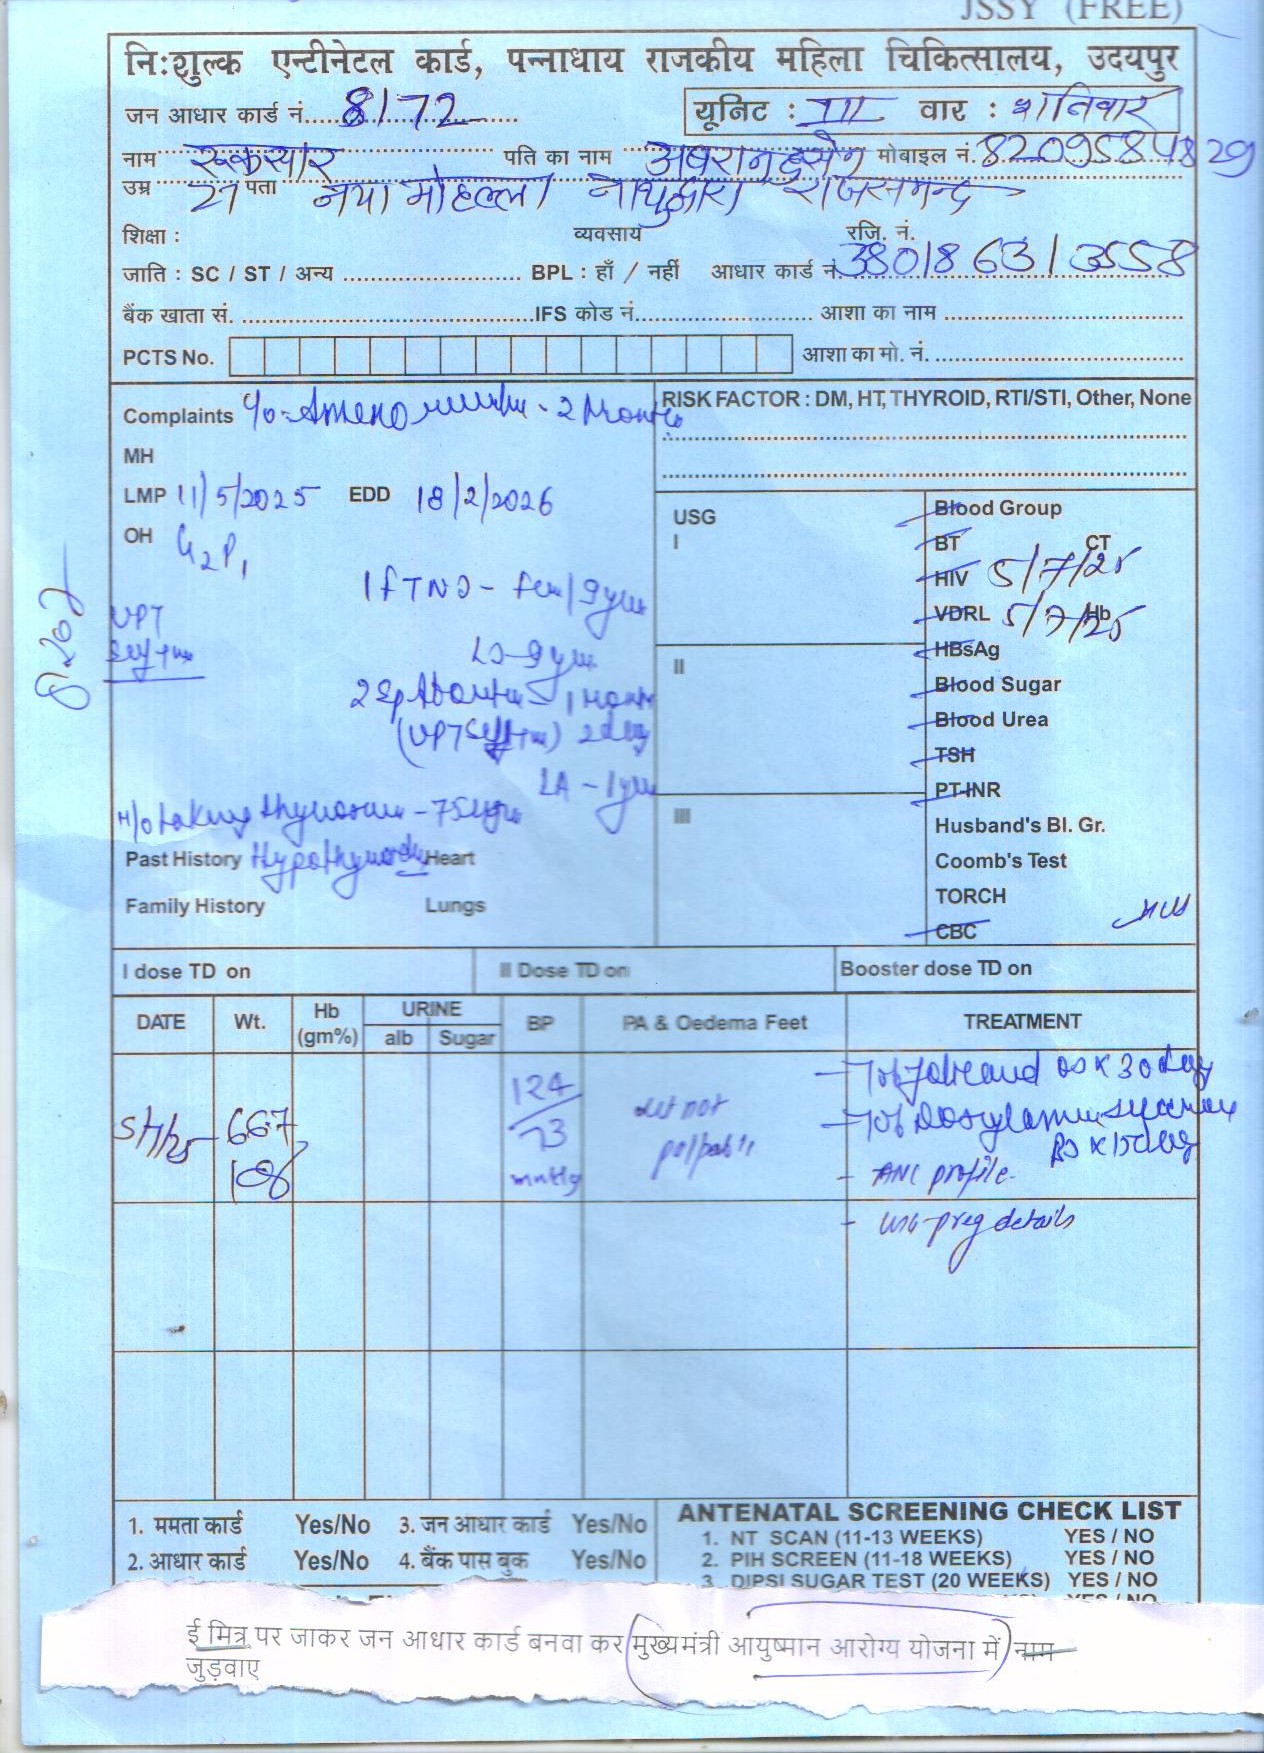 JSSY (FREE)
नि:शुल्क एन्टीनेटल कार्ड, पन्नाधाय राजकीय महिला चिकित्सालय, उदयपुर
जन आधार कार्ड नं. 8172 यूनिट : III वार : शनिवार
नाम रूकसार पति का नाम मोबाइल नं. 8209584829
उम्र 27 पता नया मोहल्ला नाथुद्वारा राजसमन्द
शिक्षा : व्यवसाय रजि. नं.
जाति : SC / ST / अन्य BPL : हाँ / नहीं आधार कार्ड नं. 380186313558
बैंक खाता सं. IFS कोड नं. आशा का नाम
PCTS No. आशा का मो. नं.
Complaints 2 Months
RISK FACTOR : DM, HT, THYROID, RTI/STI, Other, None
MH
LMP 11/5/2025 EDD 18/2/2026
OH G2P1
1 FTND - 9
UPT
LD - 9
2 Sp
(UPT
LA - 1
H/o taking - 75
Past History Heart
Family History Lungs
USG
I
II
III
Blood Group
BT CT
HIV 5/7/25
VDRL 5/7/25 Hb
HBsAg
Blood Sugar
Blood Urea
TSH
PT-INR
Husband's Bl. Gr.
Coomb's Test
TORCH
CBC
I dose TD on II Dose TD on Booster dose TD on
DATE Wt. Hb (gm%) URINE alb Sugar BP PA & Oedema Feet TREATMENT
5/7/25 66.7 124/73 not palpable
108
- Tab OD x 30 day
- Tab Doxylamine
BD x 15 day
- ANC profile
- USG preg details
1. ममता कार्ड Yes/No 3. जन आधार कार्ड Yes/No
2. आधार कार्ड Yes/No 4. बैंक पास बुक Yes/No
ANTENATAL SCREENING CHECK LIST
1. NT SCAN (11-13 WEEKS) YES / NO
2. PIH SCREEN (11-18 WEEKS) YES / NO
3. DIPSI SUGAR TEST (20 WEEKS) YES / NO
YES / NO
ई मित्र पर जाकर जन आधार कार्ड बनवा कर मुख्यमंत्री आयुष्मान आरोग्य योजना में नाम
जुड़वाए